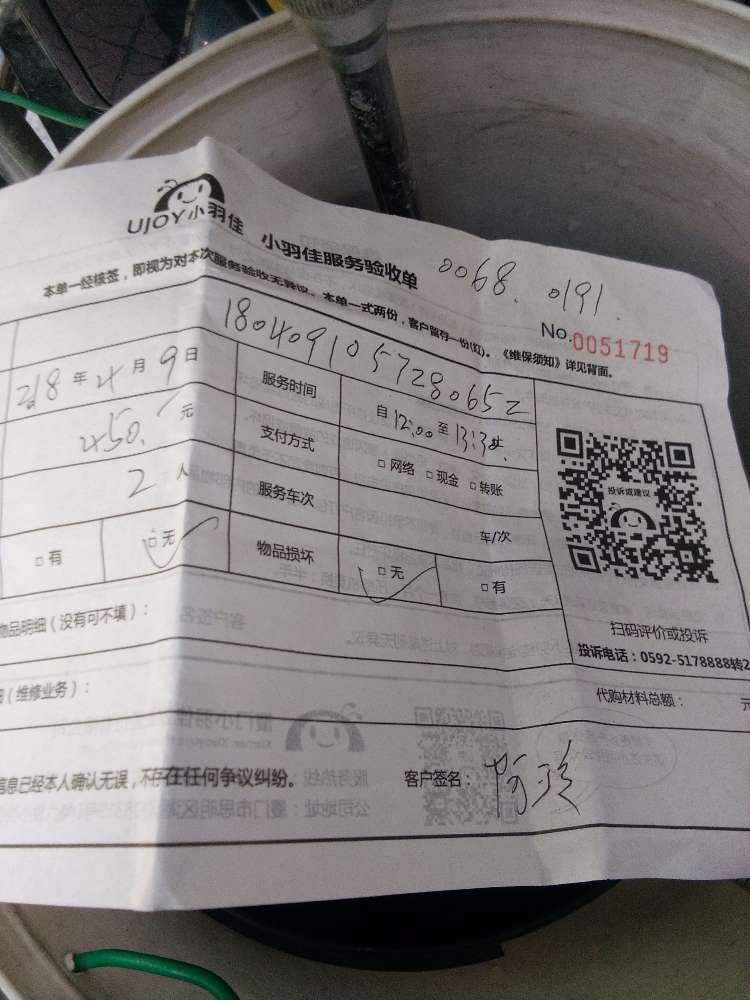 UJOY小羽佳
小羽佳服务验收单
0068. 0191.
本单一经核签，即视为对本次服务验收无异议。本单一式两份，客户留存一份(红)。《维保须知》详见背面。
No.0051719
1804091057280652
2018年4月9日 服务时间 自12:00至13:30
450.元 支付方式 □网络 □现金 □转账
2人 服务车次 车/次
□有 □无 物品损坏 □无 □有
投诉或建议
扫码评价或投诉
投诉电话：0592-5178888转2
物品明细（没有可不填）：
（维修业务）： 代购材料总额： 元
信息已经本人确认无误，不存在任何争议纠纷。 客户签名：